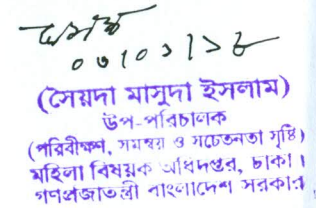 (সৈয়দা মাসুদা ইসলাম)
উপ-পরিচালক
(পরিবীক্ষণ, সমন্বয় ও সচেতনতা সৃষ্টি)
মহিলা বিষয়ক অধিদপ্তর, ঢাকা।
গণপ্রজাতন্ত্রী বাংলাদেশ সরকার